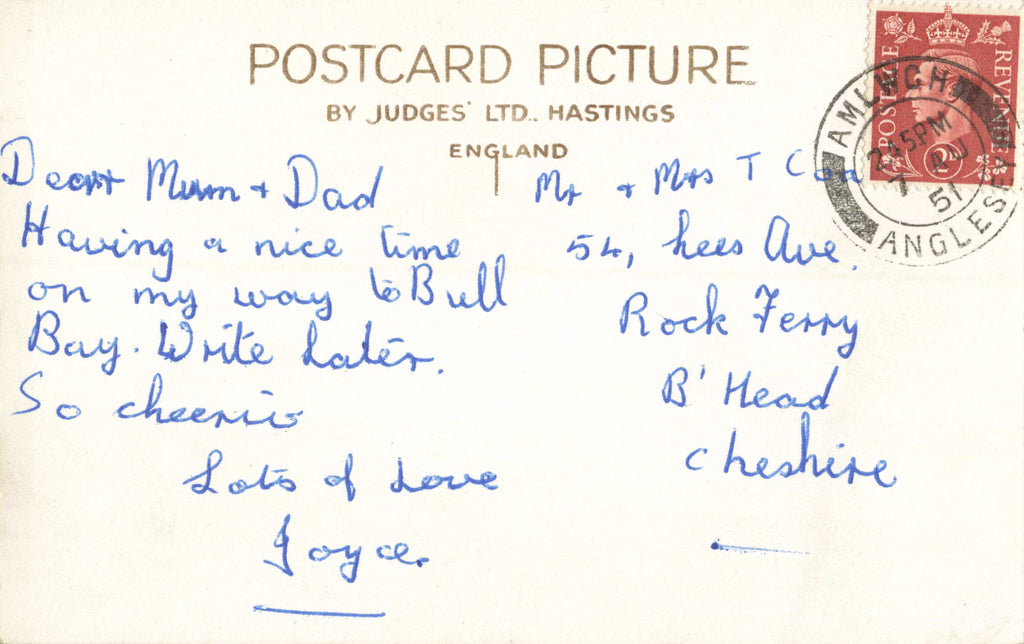 POSTCARD PICTURE
BY JUDGES' LTD.. HASTINGS
ENGLAND
POSTAGE
REVENUE
AMLWCH
2 45 PM
7 AU
51
ANGLESEY
Dear Mum + Dad
Having a nice time
on my way to Bull
Bay. Write Later.
So cheerio
Lots of Love
Joyce.
Mr + Mrs T
54, Lees Ave.
Rock Ferry
B' Head
Cheshire